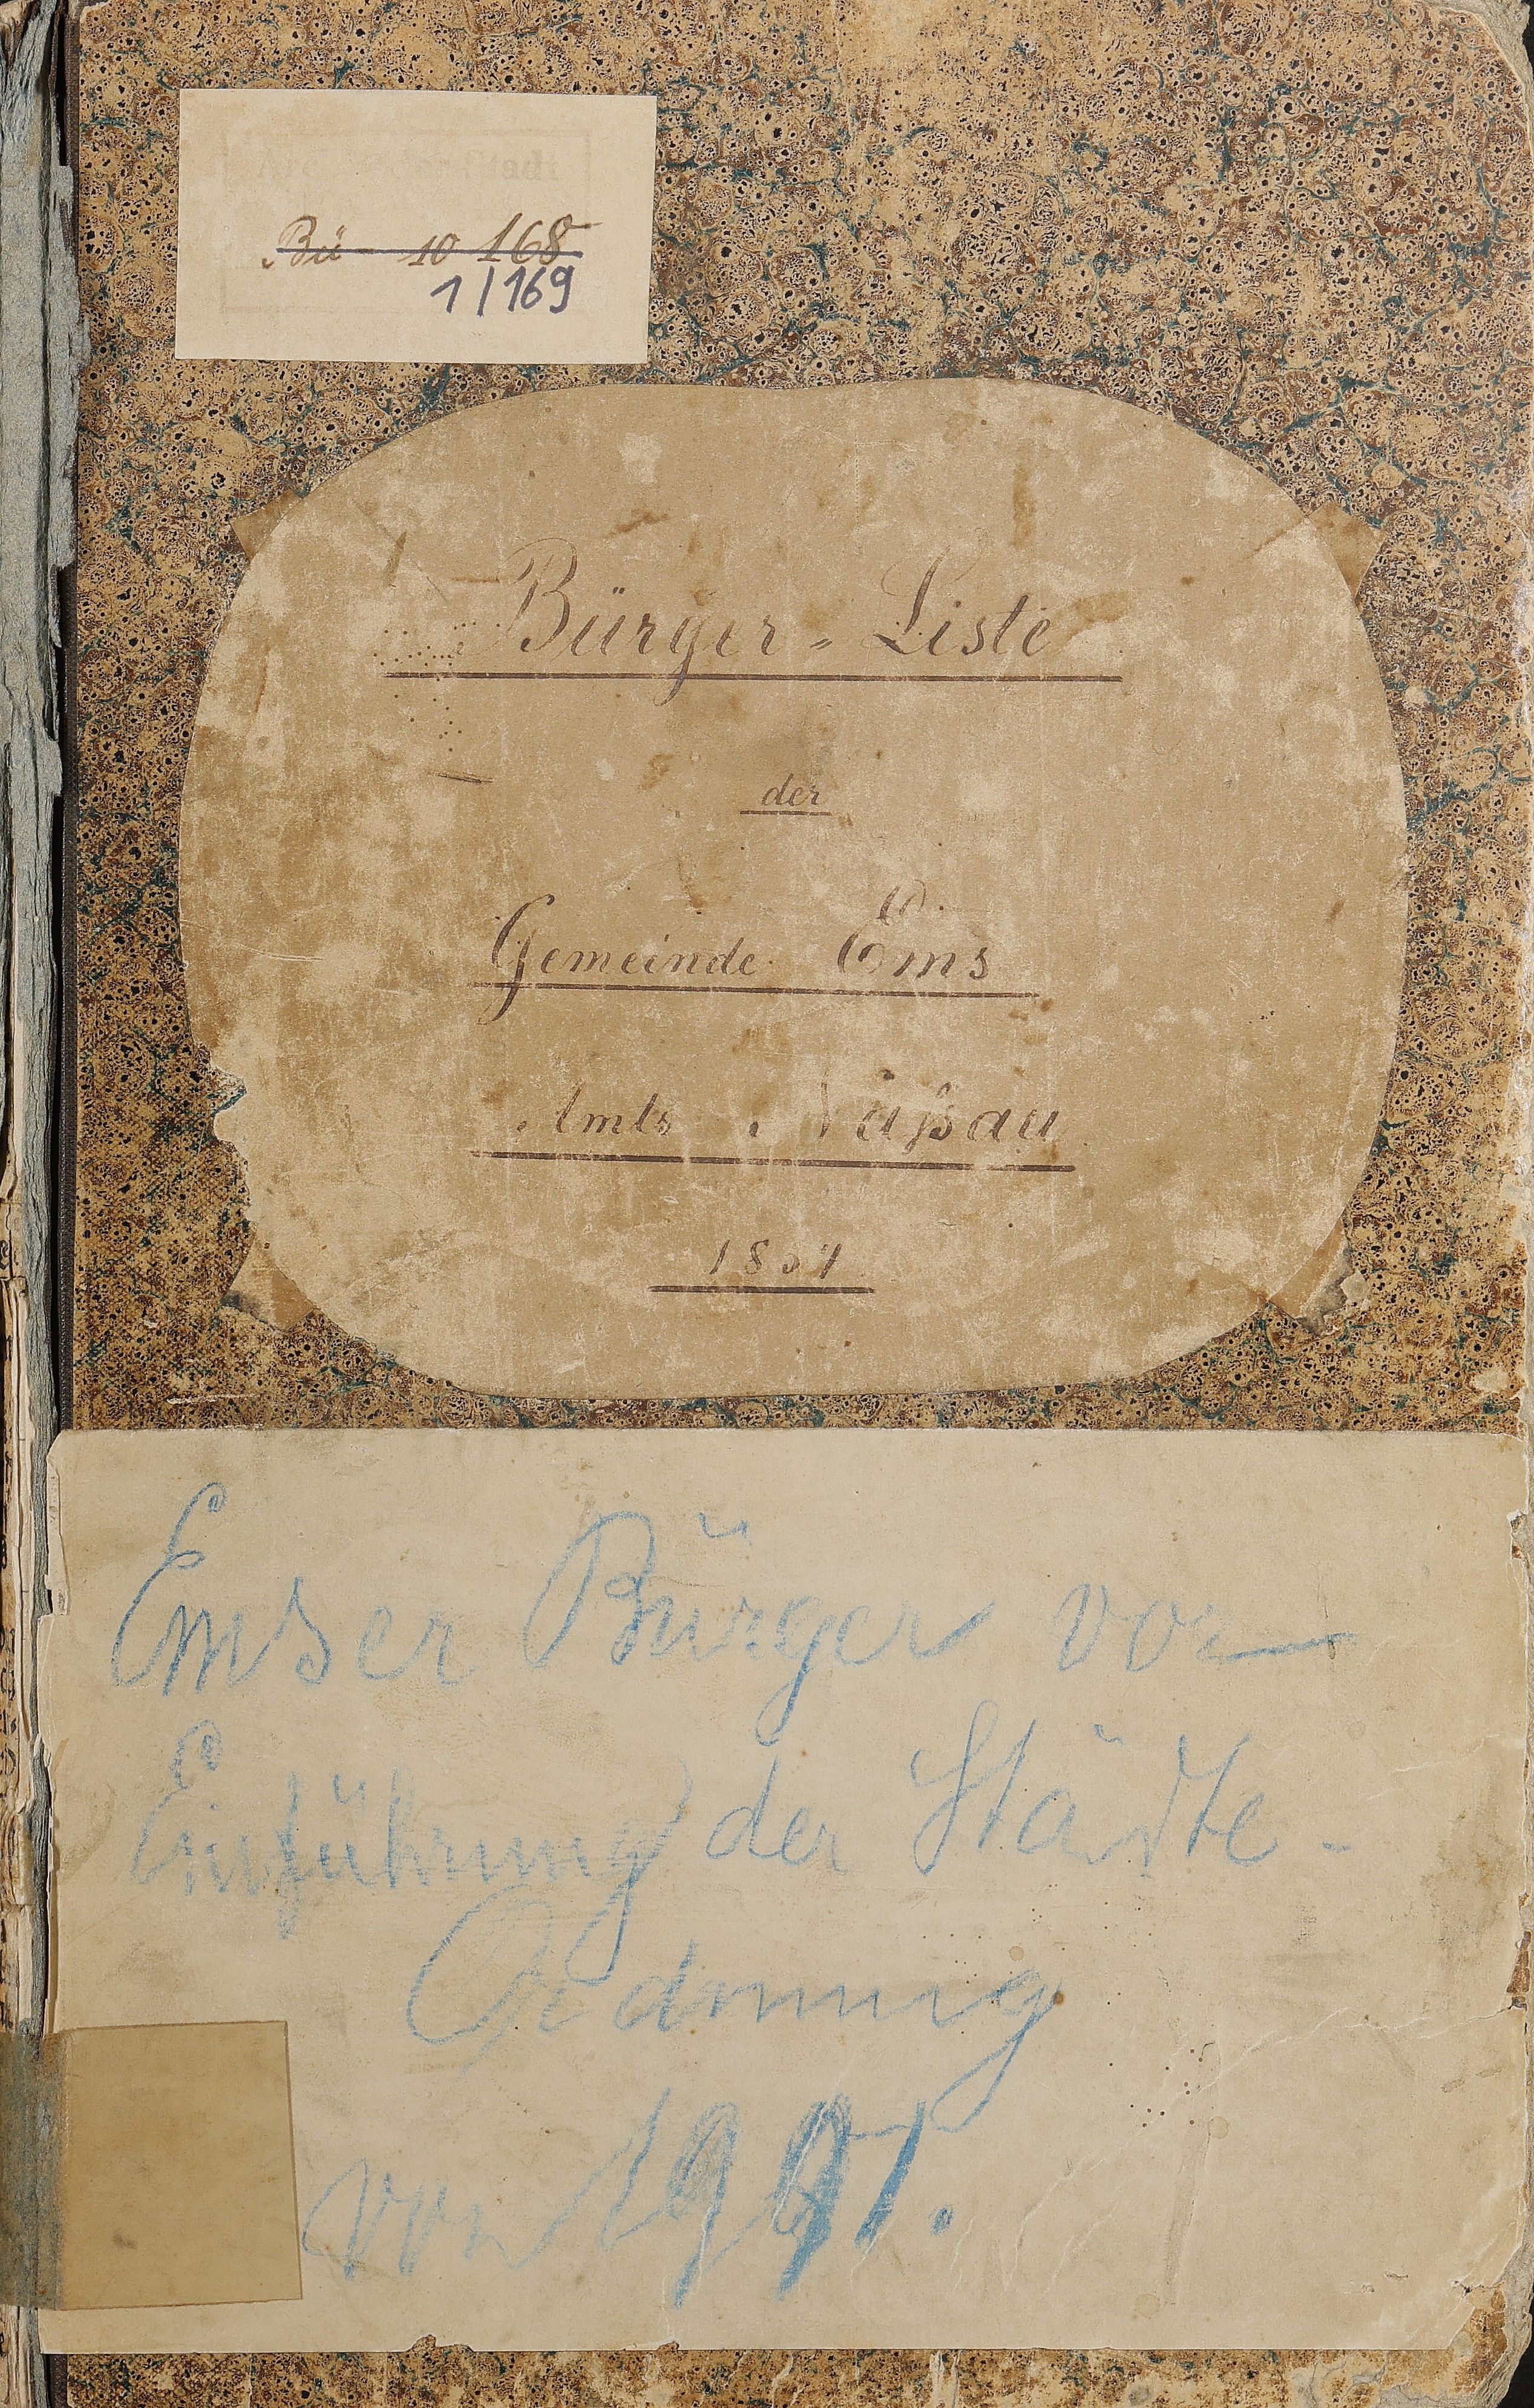 Archiv der Stadt
Bü - 10 168
1/169
Bürger-Liste
der
Gemeinde Ems
Amts Naßau
Emser Bürger vor
Einführung der Städte-
Ordnung
von